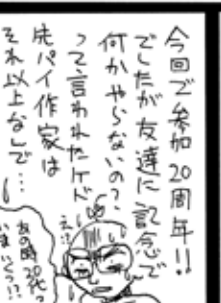 今回で参加20周年!!
でしたが友達に記念で
何かやらないの?
って言われたケド
先パイ作家は
それ以上なしで…
え!?
あの時20代って
いまいくつ!?